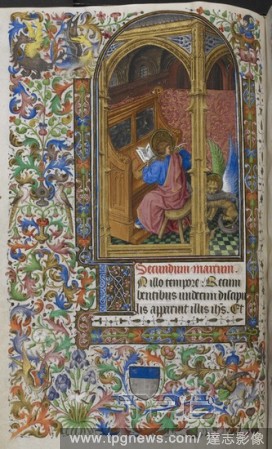 Secundum marcum.
In illo tempore: Recum
bentibus undecim discipu
lis aparuit illis ihs. Et
www.tpgnews.com/ 達志影像